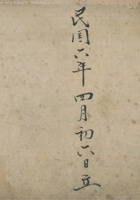 民国六年四月初六日立